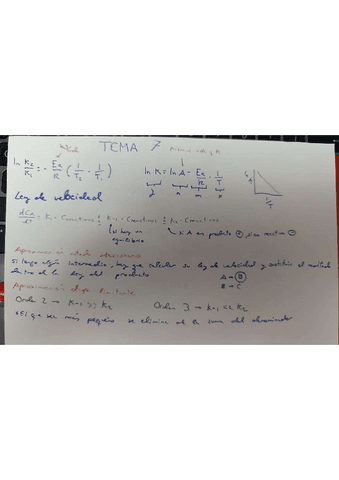 TEMA 7
ln K2/K1 = - Ea/R (1/T2 - 1/T1)
ln K = ln A - Ea/R · 1/T
y n m x
1/T
Ley de velocidad
dCa/dt = K1 · Concentraciones ± K-1 · Concentraciones ± K2 · Concentraciones
si hay en equilibrio
Si A es producto ⊕ si es reactivo ⊖
Aproximación estado estacionario
si tengo algún intermedio, hay que calcular su ley de velocidad y sustituir el resultado
dentro de la ley del producto
A → B
B → C
Aproximación etapa limitante
Orden 2 → K-1 >> K2
Orden 3 → K-1 << K2
El que sea más pequeño se elimina de la suma del denominador